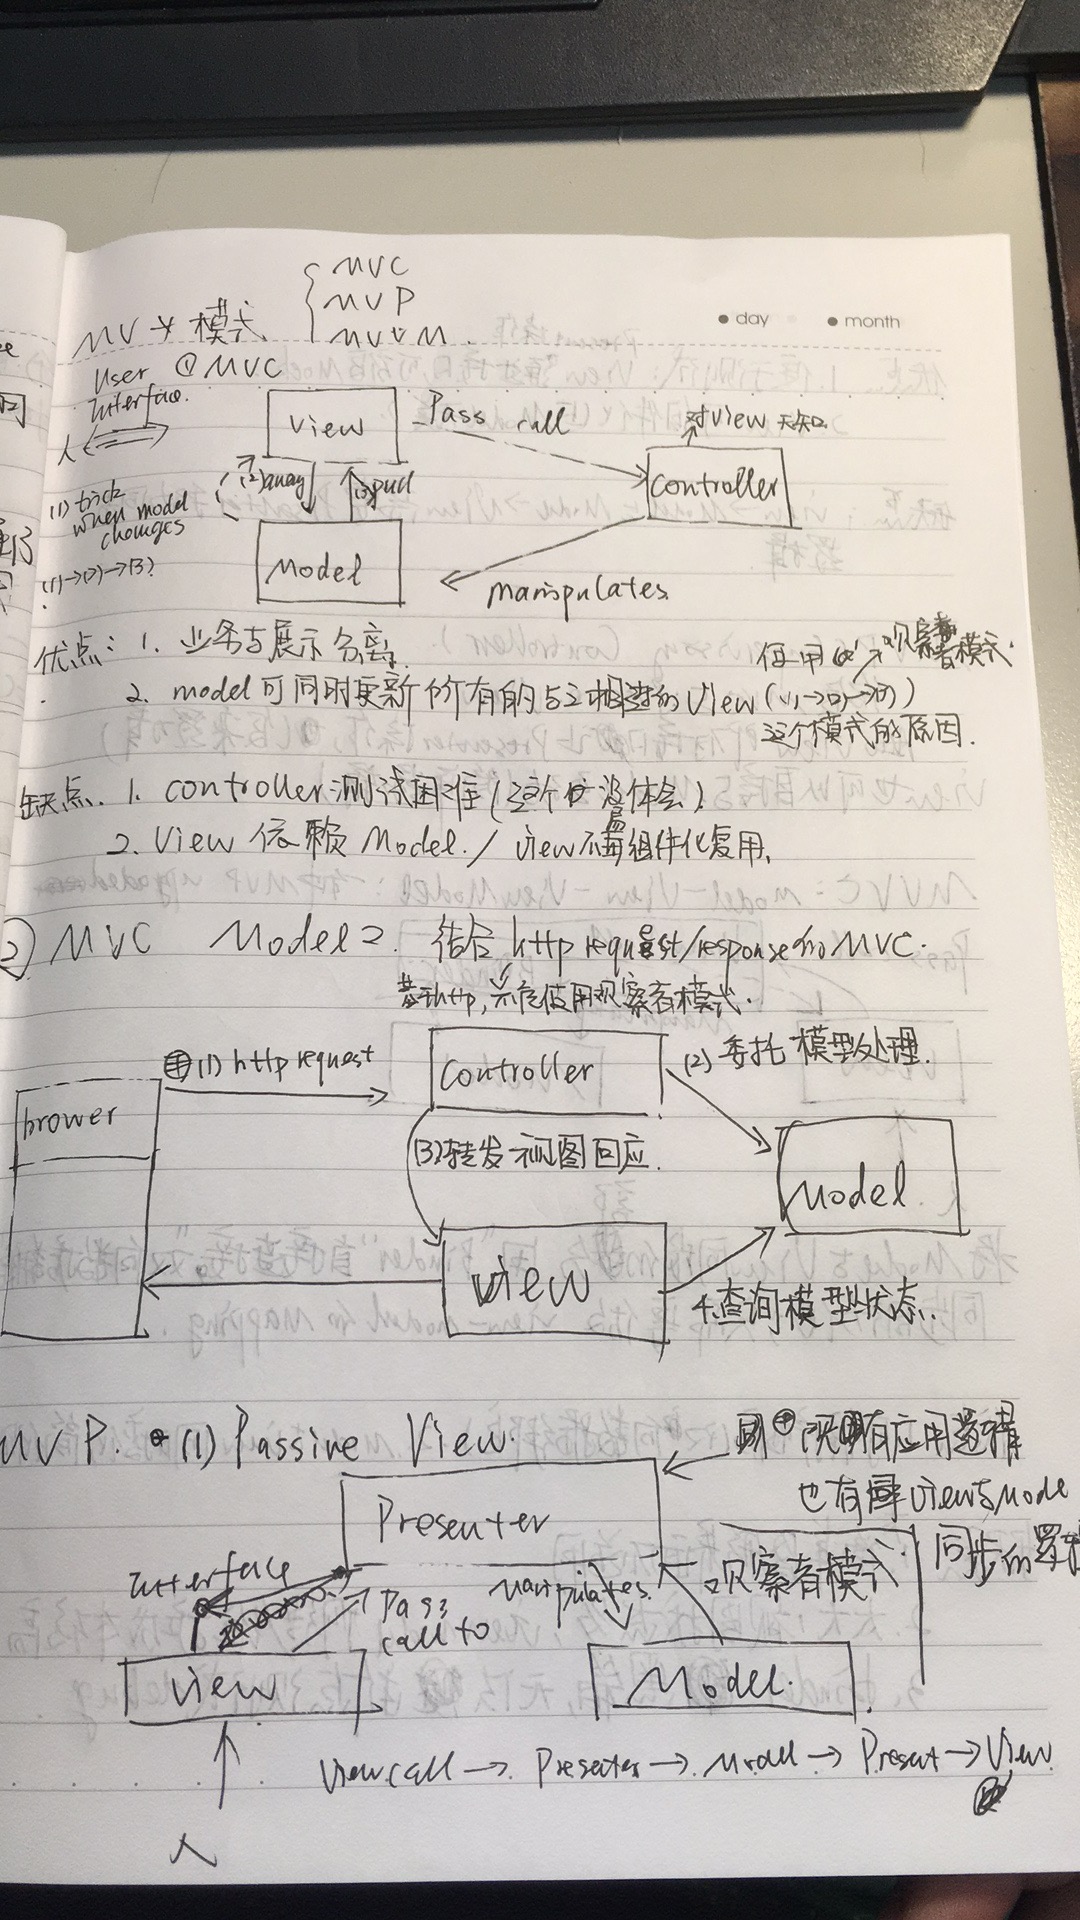 MVC
MVP
MVVM
MV* 模式
day
month
① MVC
User
Interface.
View
Pass call
对View 无知
Controller
(3)pull
(1) trick
when model
changes
(1)→(2)→(3)
Model
manipulates
优点: 1. 业务与展示分离.
观察者模式
2. model可同时更新所有的与之相连的View ((1)→(2)→(3))
这个模式的原因.
缺点. 1. controller测试困难(这个没体会)
2. View 依赖 Model. / view 组件化复用.
② MVC Model 2. 结合 http request/response的MVC.
基于http, 使用观察者模式.
(1) http request
Controller
(2) 委托模型处理.
brower
(3)转发 视图回应.
Model
View
4.查询模型状态.
MVP. (1) Passive View.
有应用逻辑
也有 View与Model
同步的逻辑
Presenter
Interface
Pass
call to
Manipulates.
观察者模式.
View
Model.
View call → Presenter → Model → Present → View
人